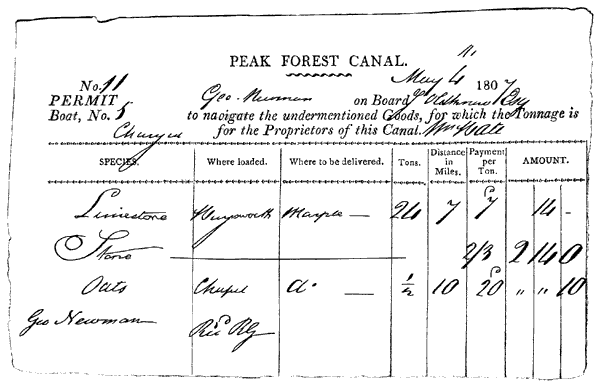 PEAK FOREST CANAL.
No. 11 May 4 1807
PERMIT Geo. Newman on Board Oldknow Esq
Boat, No. 5 to navigate the undermentioned Goods, for which the Tonnage is
Charged for the Proprietors of this Canal. Wm Hall
SPECIES. Where loaded. Where to be delivered. Tons. Distance in Miles. Payment per Ton. AMOUNT.
Limestone Marple — 24 7 7 14 -
Stone 2/3 2 14 0
Oats Chapel do — ½ 10 20 " " 10
Geo Newman